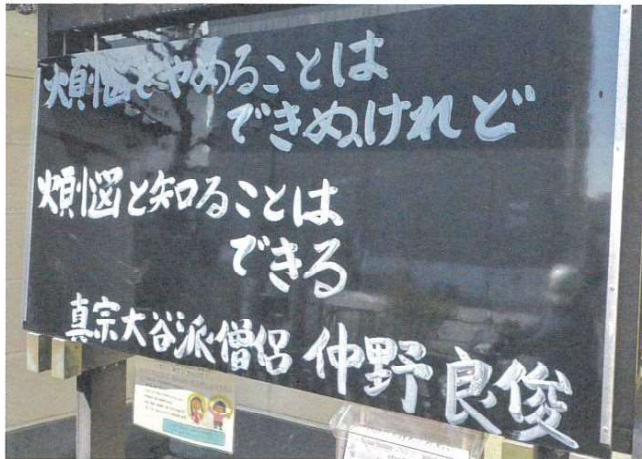 煩悩をやめることは
できぬけれど
煩悩と知ることは
できる
真宗大谷派僧侶 仲野良俊